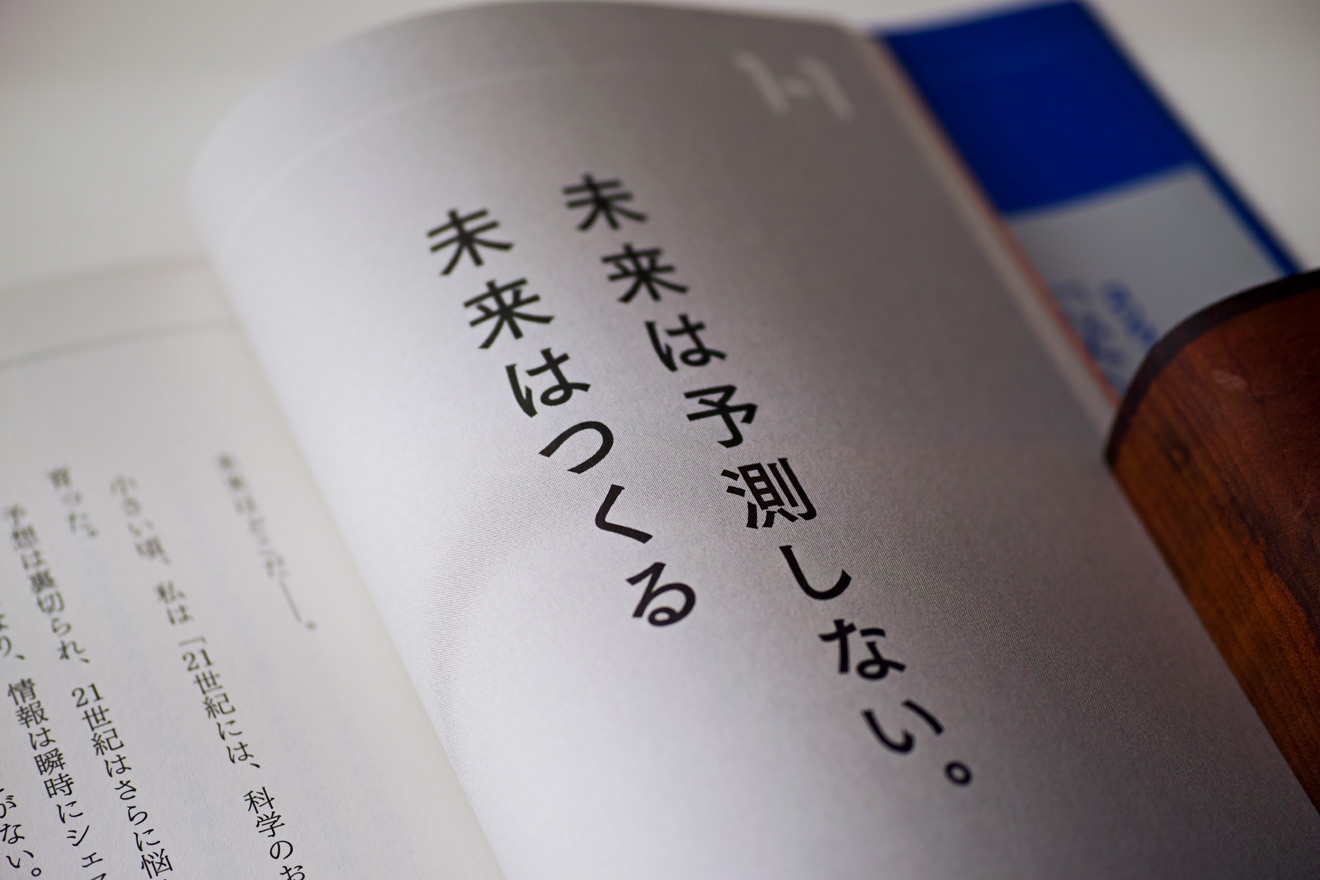 1-1
未来は予測しない。
未来はつくる
未来はどこだ――。
小さい頃、私は「21世紀には、科学のお
育った。
予想は裏切られ、21世紀はさらに悩
情報は瞬時にシェア
がない。